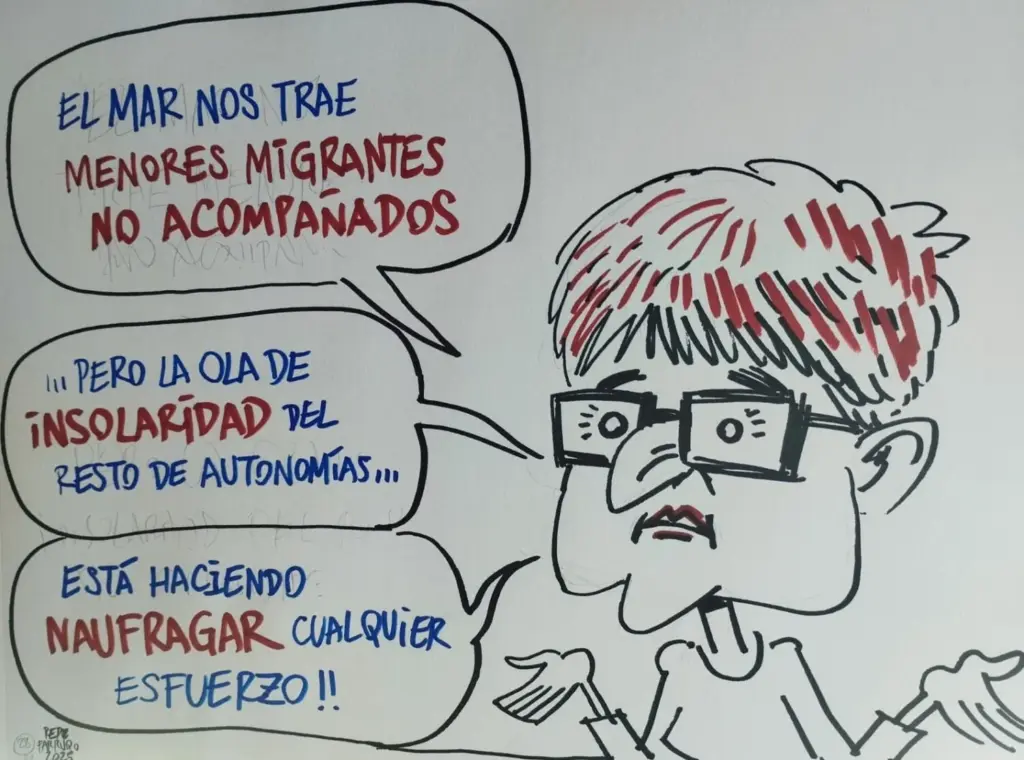 EL MAR NOS TRAE
MENORES MIGRANTES
NO ACOMPAÑADOS
... PERO LA OLA DE
INSOLARIDAD DEL
RESTO DE AUTONOMÍAS...
ESTÁ HACIENDO
NAUFRAGAR CUALQUIER
ESFUERZO!!
PEPE
FARRUQO
2025